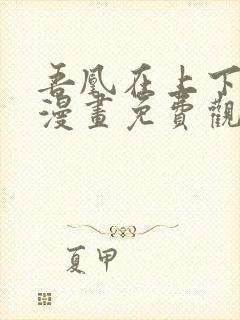 吾凰在上下
漫畫免費觀
夏甲